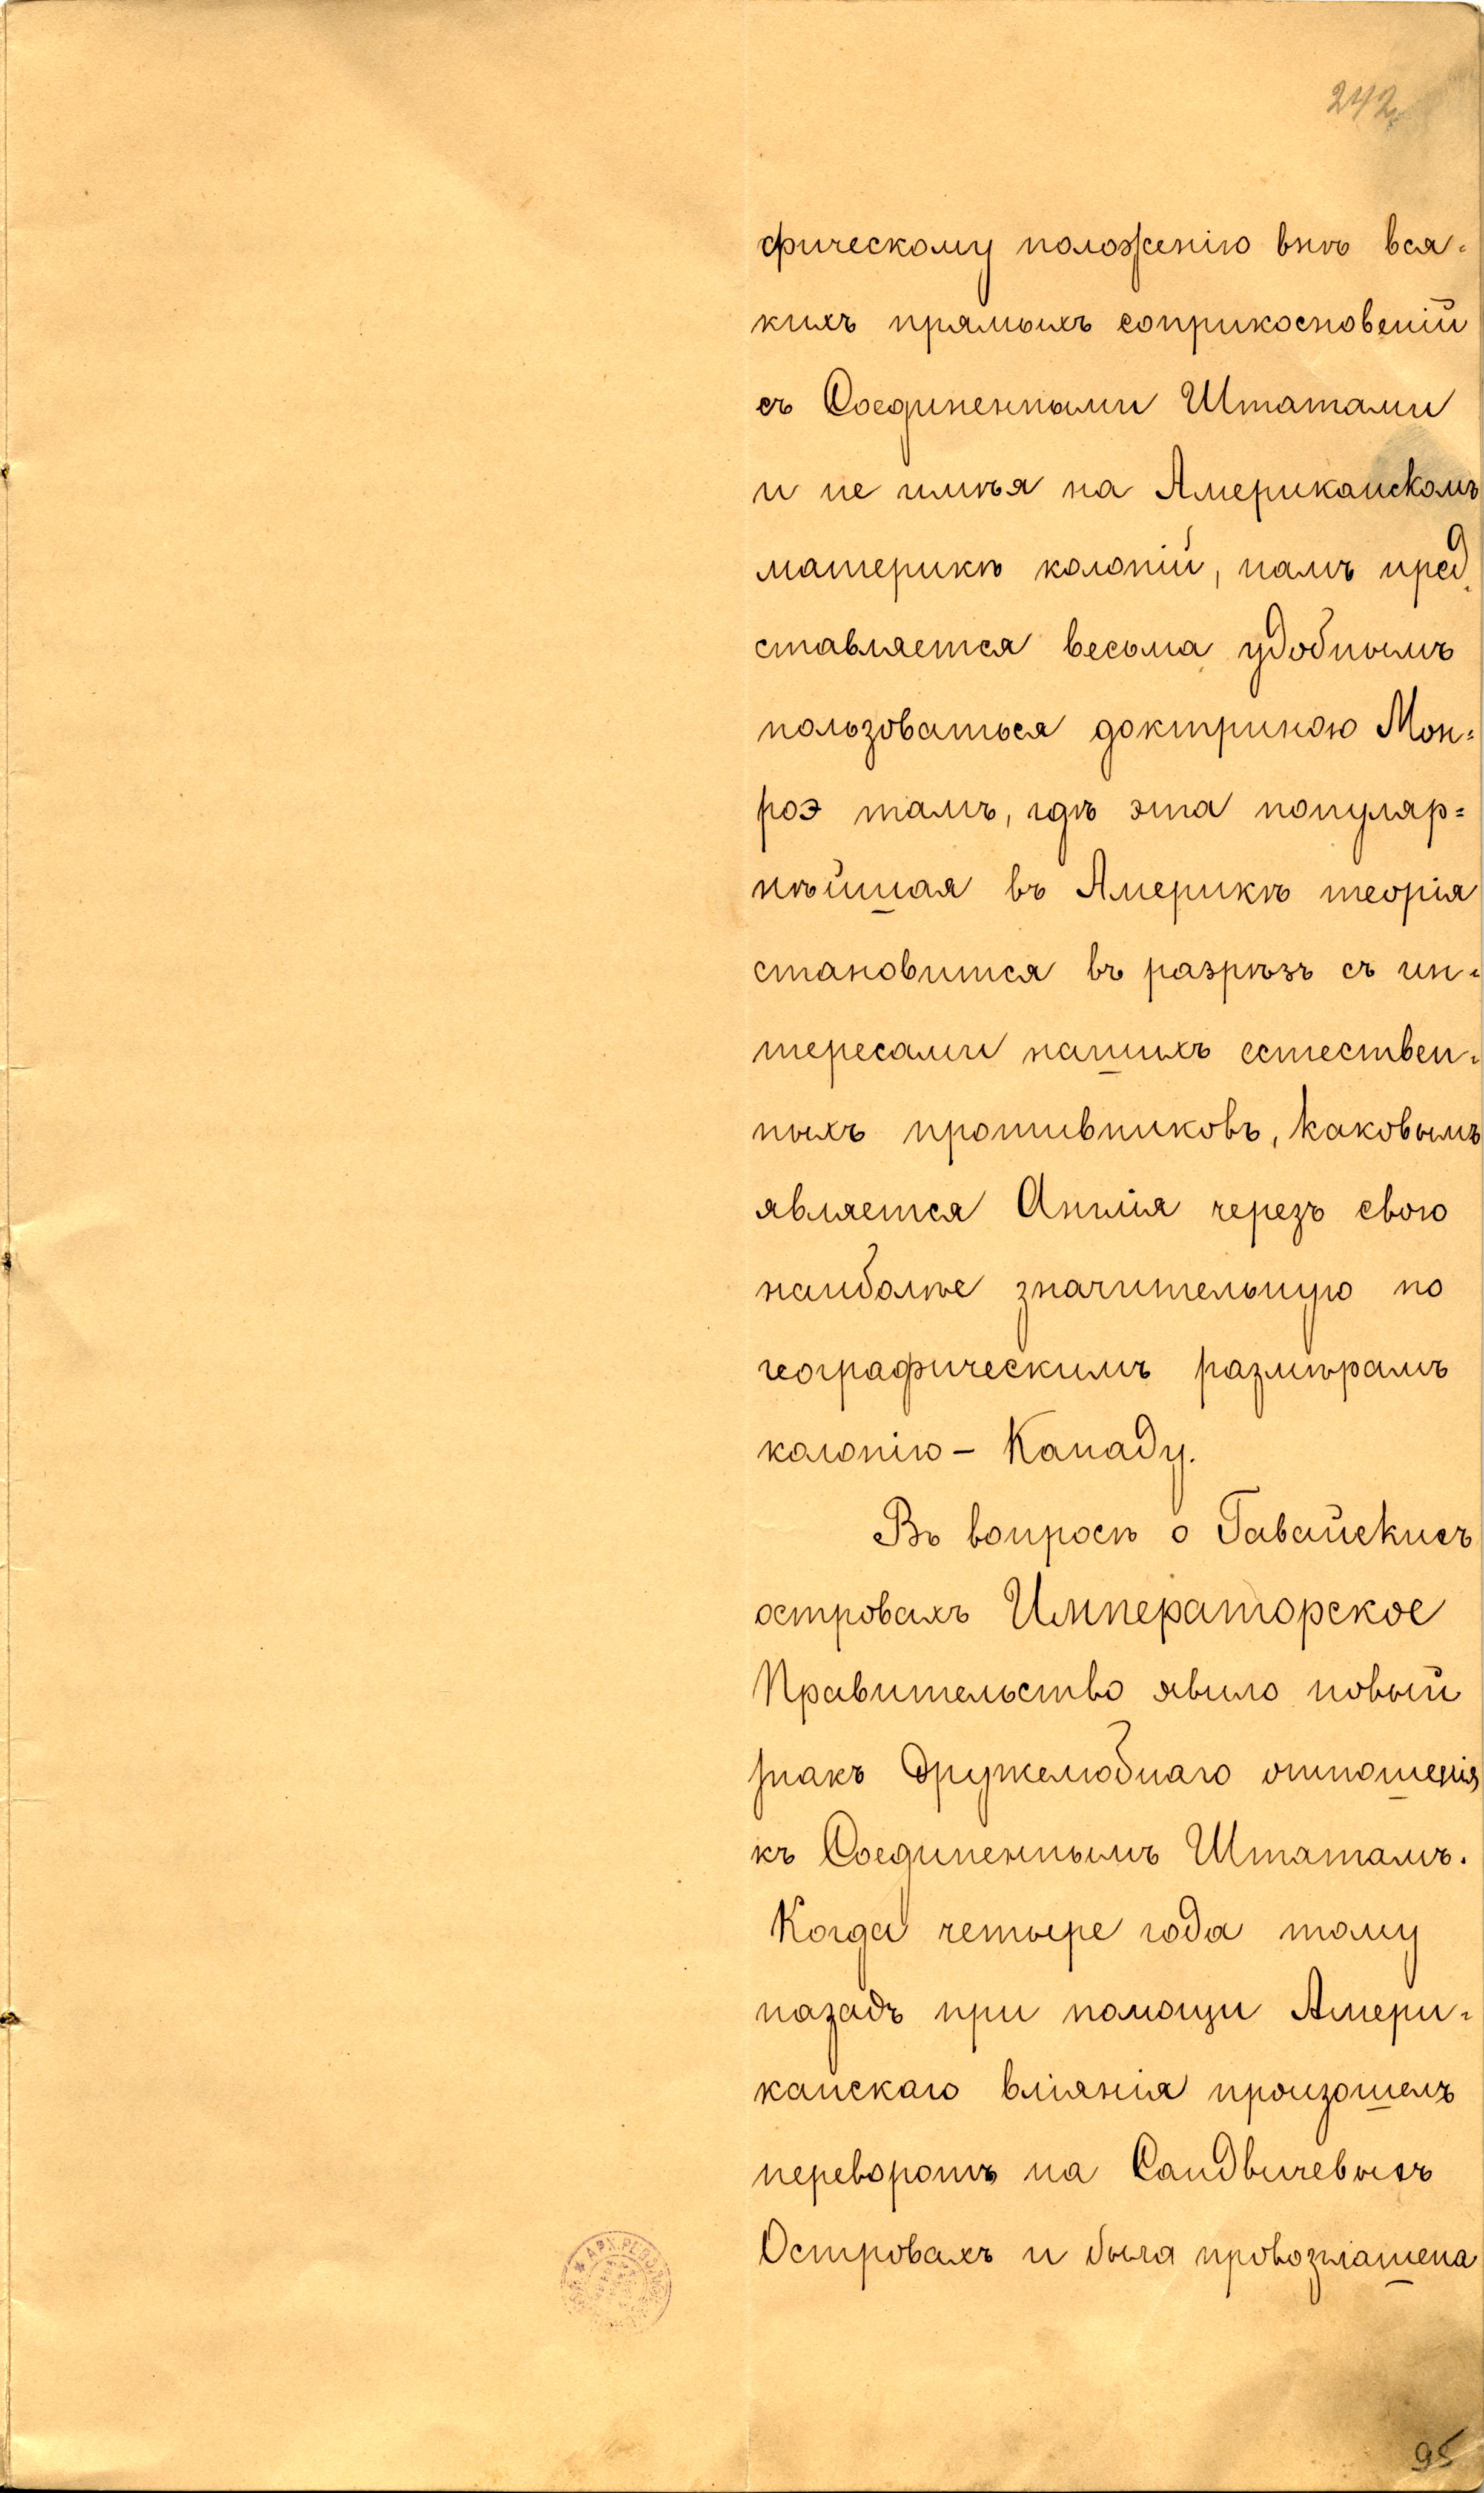 242
фическому положенію внѣ вся-
кихъ прямыхъ соприкосновеній
съ Соединенными Штатами
и не имѣя на Американскомъ
материкѣ колоній, намъ пред-
ставляется весьма удобнымъ
пользоваться доктриною Мон=
роэ тамъ, гдѣ эта популяр=
нѣйшая въ Америкѣ теорія
становится въ разрѣзъ съ ин-
тересами нашихъ естествен-
ныхъ противниковъ, каковымъ
является Англія черезъ свою
наиболѣе значительную по
географическимъ размѣрамъ
колонію – Канаду.
Въ вопросѣ о Гавайскихъ
островахъ Императорское
Правительство явило новый
знакъ дружелюбнаго отношенія
къ Соединеннымъ Штатамъ.
Когда четыре года тому
назадъ при помощи Амери-
канскаго вліянія произошелъ
переворотъ на Сандвичевыхъ
Островахъ и была провозглашена
95